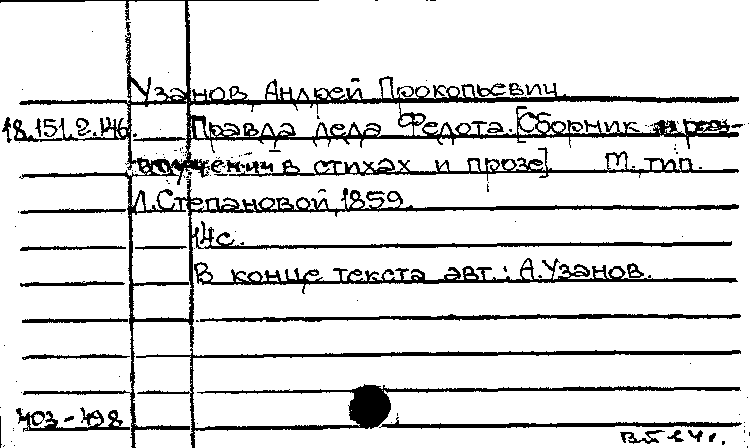 Узанов, Андрей Прокопьевич.
18.151.2.146. Правда деда Федота. [Сборник
в стихах и прозе]. М., тип.
Л. Степановой, 1859.
14с.
В конце текста авт.: А. Узанов.
403-498